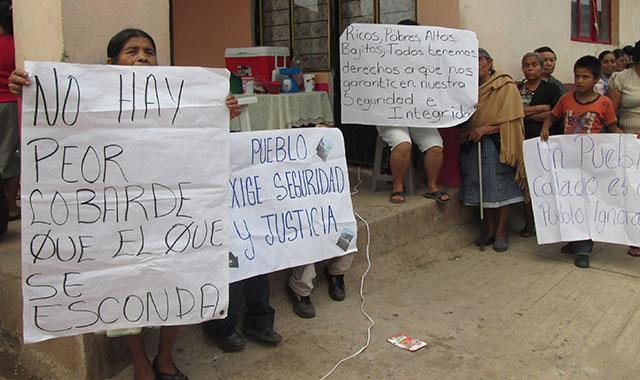 NO HAY
PEOR
COBARDE
QUE EL QUE
SE
ESCONDA
PUEBLO
EXIGE SEGURIDAD
Y JUSTICIA
Ricos, Pobres, Altos
Bajitos, Todos tenemos
derechos a que nos
garanticen nuestra
Seguridad e
Integrida
Un Pueblo
callado es
Pueblo Ignora